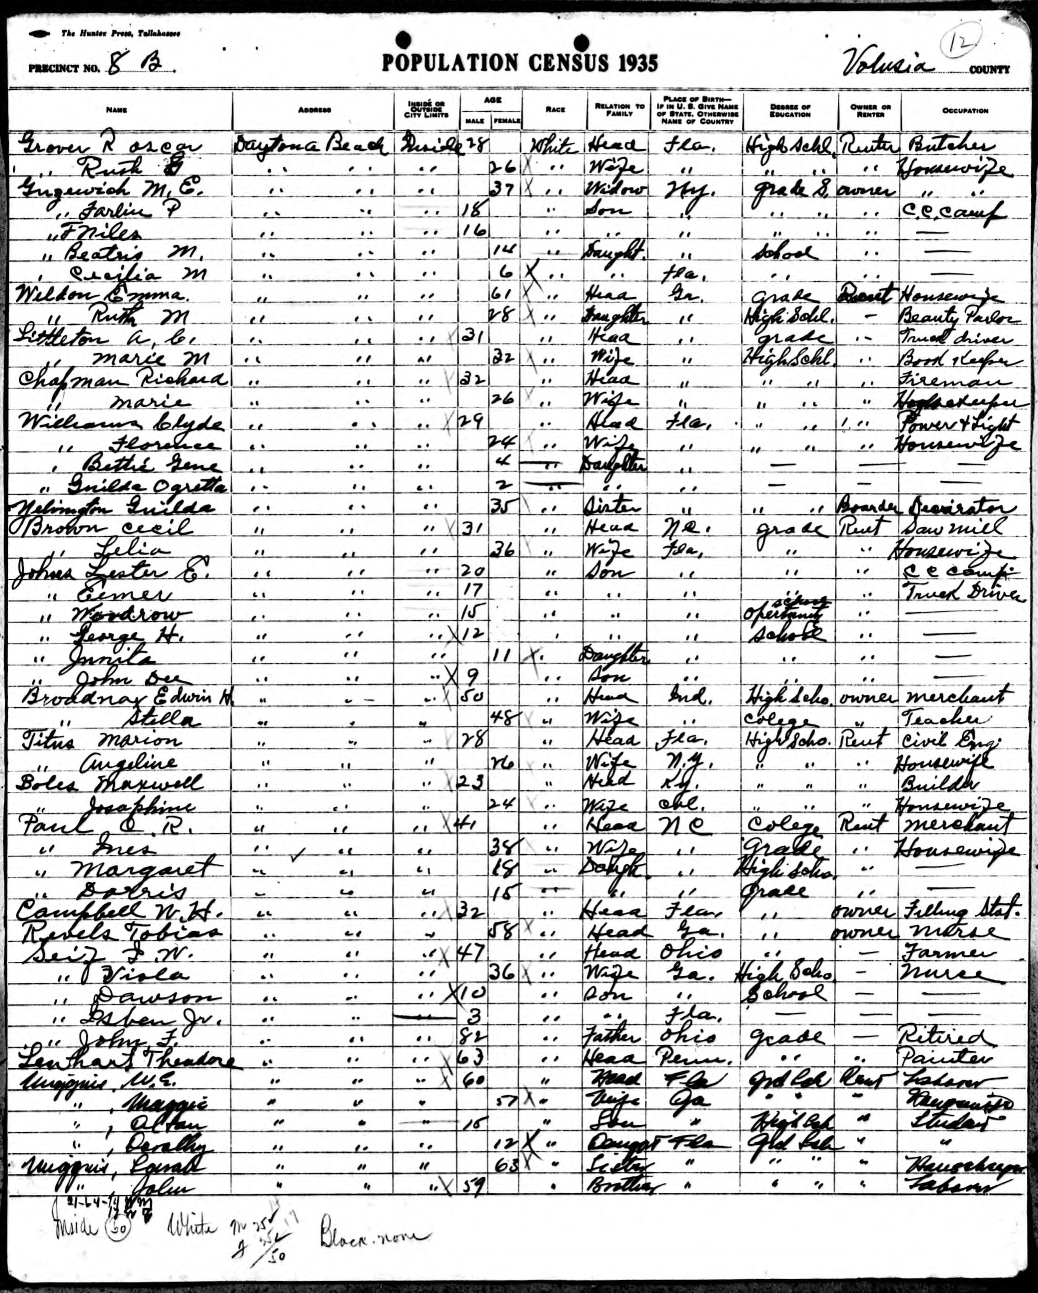 The Hunter Press, Tallahassee
12
PRECINCT NO. 8 B. POPULATION CENSUS 1935 Volusia COUNTY
NAME ADDRESS INSIDE OR OUTSIDE CITY LIMITS AGE MALE FEMALE RACE RELATION TO FAMILY PLACE OF BIRTH—IF IN U. S. GIVE NAME OF STATE. OTHERWISE NAME OF COUNTRY DEGREE OF EDUCATION OWNER OR RENTER OCCUPATION
Grover R oscar Daytona Beach Inside 28 White Head Fla. High Schl. Renter Butcher
,, Ruth E ,, ,, ,, 26 ,, Wife ,, ,, ,, ,, Housewife
M. E. ,, ,, ,, 37 X ,, Widow Ny. grade S. owner ,, ,,
,, Farlin P ,, ,, ,, 18 ,, Son ,, ,, ,, ,, C.C. Camp
,, F Niles ,, ,, ,, 16 ,, ,, ,, ,, ,, ,, —
,, Beatris M. ,, ,, ,, 14 ,, Daught. ,, School ,, —
,, Cecilia M ,, ,, ,, 6 X ,, ,, Fla. ,, ,, —
Weldon Emma. ,, ,, ,, 61 X ,, Head Ga. grade Rent Housewife
,, Ruth M ,, ,, ,, 28 X ,, Daughter ,, High Schl. — Beauty Parlor
Littleton A, C. ,, ,, ,, X 31 ,, Head ,, grade ,, Truck driver
,, marie M ,, ,, ,, 32 X ,, Wife ,, High Schl. ,, Book Keeper
Chapman Richard ,, ,, ,, X 32 ,, Head ,, ,, ,, ,, Fireman
,, marie ,, ,, ,, 26 X ,, Wife ,, ,, ,, ,,
Williams Clyde ,, ,, ,, X 29 ,, Head Fla. ,, ,, ,, Power & Light
,, Florence ,, ,, ,, 24 X ,, Wife ,, ,, ,, ,, Housewife
,, Bettie Gene ,, ,, ,, 4 — ,, Daughter ,, — — —
,, Guilda Ogretta ,, ,, ,, 2 — ,, ,, ,, — — —
Guilda ,, ,, ,, 35 X ,, Sister ,, ,, ,, Boarder Decorator
Brown Cecil ,, ,, ,, X 31 ,, Head N C. grade Rent Saw mill
,, Lelia ,, ,, ,, 36 X ,, Wife Fla. ,, ,, Housewife
Johns Lester E. ,, ,, ,, 20 ,, Son ,, ,, ,, C C Camp.
,, Elmer ,, ,, ,, 17 ,, ,, ,, ,, ,, Truck Driver
,, Woodrow ,, ,, ,, 15 ,, ,, ,, ,, —
,, George H. ,, ,, ,, X 12 ,, ,, ,, School ,, —
,, Junita ,, ,, ,, 11 X ,, Daughter ,, ,, ,, —
,, John Dee ,, ,, ,, X 9 ,, Son ,, ,, ,, —
Broadnax Edwin H. ,, ,, ,, X 50 ,, Head Ind. High Scho. owner merchant
,, Stella ,, ,, ,, 48 X ,, Wife ,, College ,, Teacher
Titus Marion ,, ,, ,, X 28 ,, Head Fla. High Scho. Rent Civil Eng.
,, Angeline ,, ,, ,, 26 X ,, Wife N.Y. ,, ,, ,, Housewife
Boles Maxwell ,, ,, ,, X 23 ,, Head Ky. ,, ,, ,, Builder
,, Josaphine ,, ,, ,, 24 X ,, Wife ,, ,, ,, Housewife
Paul O. R. ,, ,, ,, X 41 ,, Head N C Colege Rent merchant
,, Ines ,, ,, ,, 38 X ,, Wife ,, Grade ,, Housewife
,, Margaret ,, ,, ,, 18 ,, Daugh. ,, High Scho. ,, —
,, Dorris ,, ,, ,, 15 ,, ,, ,, Grade ,, —
Campbell W. H. ,, ,, ,, X 32 ,, Head Fla. ,, owner Filling Stat.
Revels Tobias ,, ,, ,, 58 X ,, Head Ga. ,, owner Nurse
Seiz F. W. ,, ,, ,, X 47 ,, Head Ohio ,, — Farmer
,, Viola ,, ,, ,, 36 X ,, Wife Ga. High Scho — Nurse
,, Dawson ,, ,, ,, X 10 ,, Son ,, School — —
,, Jr. ,, ,, — 3 ,, ,, Fla. — — —
,, John F. ,, ,, ,, 82 ,, Father Ohio Grade — Ritired
Lenhart Theadore ,, ,, ,, X 63 ,, Head Penn. ,, ,, Painter
W. E. ,, ,, ,, X 60 ,, Head Fla Grd Sch Rent Laborer
,, Maggie ,, ,, ,, 57 X ,, Wife Ga ,, ,, ,,
,, ,, ,, ,, 15 ,, Son ,, High Sch ,, Student
,, Dorothy ,, ,, ,, 12 X ,, Daught Fla Grd Sch ,, ,,
Sarah ,, ,, ,, 63 X ,, Sister ,, ,, ,, ,,
,, John ,, ,, ,, X 59 ,, Brother ,, ,, ,, ,, Laborer
Inside 50 White m 25 Black none
/50